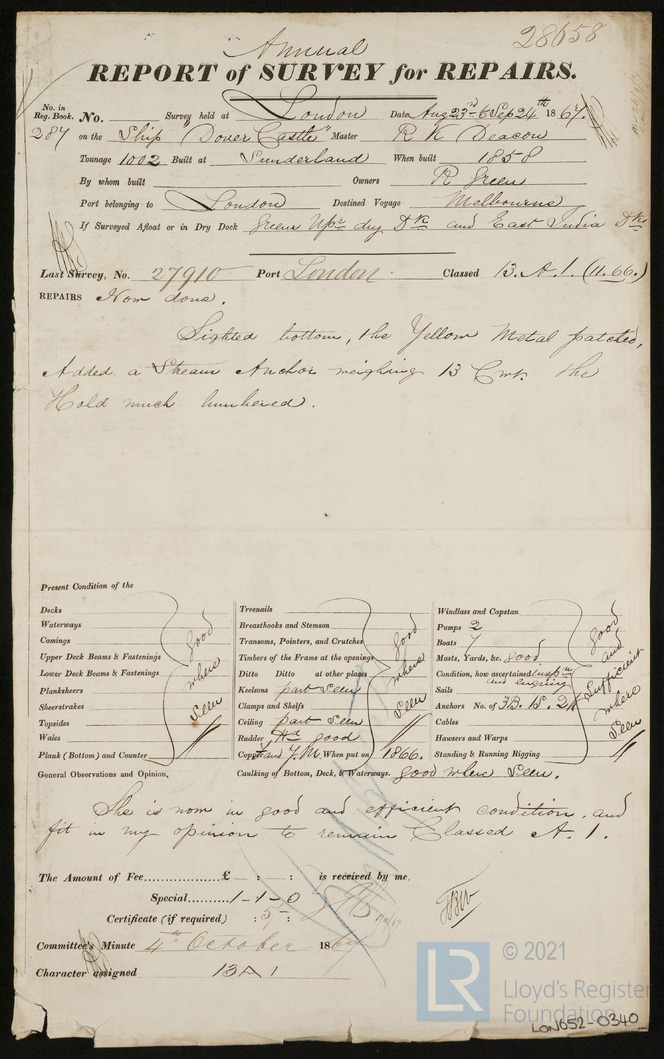 Annual
28658
REPORT of SURVEY for REPAIRS.
No. in Reg. Book. No. Survey held at London Date, Aug 23rd to Sep 24th 1867.
287 on the Ship "Dover Castle" Master R K Deacon
Tonnage 1002 Built at Sunderland When built 1858
By whom built Owners R Green
Port belonging to London Destined Voyage Melbourne
If Surveyed Afloat or in Dry Dock Greens Upr dry Dk and East India Dks
Last Survey, No. 27910 Port London Classed 13. A. 1. (11.66.)
REPAIRS Now done.
Sighted bottom, the Yellow Metal patched,
Added a Stream Anchor weighing 13 Cwt. The
Hold much lumbered.
Present Condition of the
Decks
Waterways
Comings
Upper Deck Beams & Fastenings
Lower Deck Beams & Fastenings
Planksheers
Sheerstrakes
Topsides
Wales
Plank (Bottom) and Counter
good where seen
Treenails
Breasthooks and Stemson
Transoms, Pointers, and Crutches
Timbers of the Frame at the openings
Ditto Ditto at other places
Keelsons part seen
Clamps and Shelfs
Ceiling part seen
Rudder good
Copper and Y.M. When put on 1866.
good where seen
Windlass and Capstan
Pumps 2
Boats 7
Masts, Yards, &c. good
Condition, how ascertained inspn and enquiry
Sails
Anchors No. of 3B. 1S. 2K
Cables
Hawsers and Warps
Standing & Running Rigging
good and sufficient where seen
General Observations and Opinion,
Caulking of Bottom, Deck, & Waterways. good where seen.
She is now in good and efficient condition, and
fit in my opinion to remain Classed A. 1.
The Amount of Fee £ : : is received by me,
Special 1-1-0
Certificate (if required) : 5 :
Committee's Minute 4th October 1867
Character assigned 13 A 1
© 2021
LR
Lloyd's Register
Foundation
LON652-0340